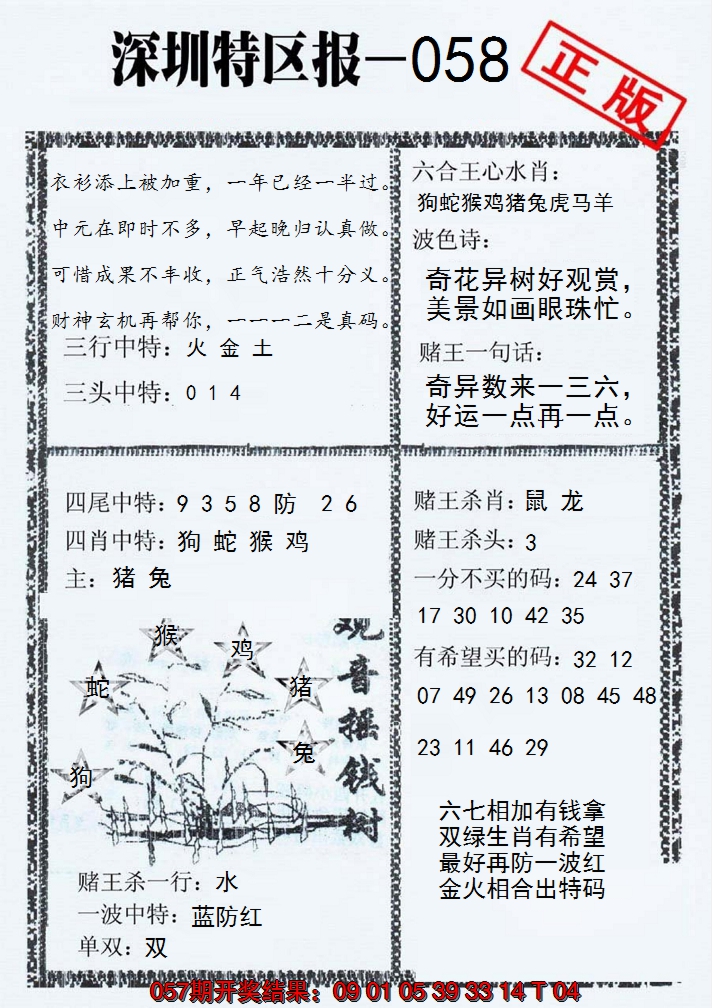 深圳特区报—058
正版
衣衫添上被加重，一年已经一半过。
中元在即时不多，早起晚归认真做。
可惜成果不丰收，正气浩然十分义。
财神玄机再帮你，一一一二是真码。
三行中特：火 金 土
三头中特：0 1 4
六合王心水肖：
狗蛇猴鸡猪兔虎马羊
波色诗：
奇花异树好观赏，
美景如画眼珠忙。
赌王一句话：
奇异数来一三六，
好运一点再一点。
四尾中特：9 3 5 8 防 2 6
四肖中特：狗 蛇 猴 鸡
主：猪 兔
猴
鸡
蛇
猪
兔
狗
观音摇钱树
赌王杀一行：水
一波中特：蓝防红
单双：双
赌王杀肖：鼠 龙
赌王杀头：3
一分不买的码：24 37
17 30 10 42 35
有希望买的码：32 12
07 49 26 13 08 45 48
23 11 46 29
六七相加有钱拿
双绿生肖有希望
最好再防一波红
金火相合出特码
057期开奖结果：09 01 05 39 33 14 T 04